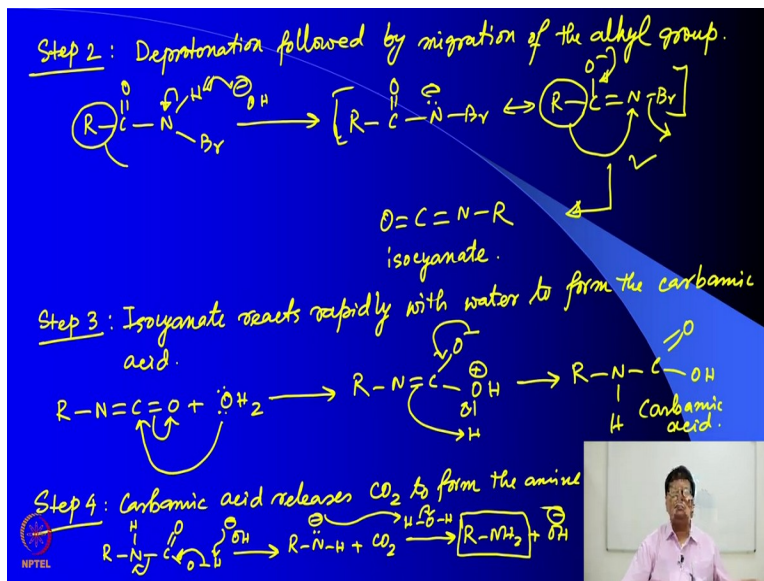 Step 2 : Deprotonation followed by migration of the alkyl group.
R-C(=O)-N(-H)-Br ⊖OH → [R-C(=O)-N̈⊖-Br ↔ R-C(-O⊖)=N-Br]
O=C=N-R
isocyanate.
Step 3 : Isocyanate reacts rapidly with water to form the carbamic
acid.
R-N=C=O + ÖH2 → R-N=C(-O⊖)-O⊕H-H → R-N(-H)-C(=O)-OH
Carbamic
acid.
Step 4 : Carbamic acid releases CO2 to form the amine
R-N(-H)-C(=O)-O-H ⊖OH → R-N̈⊖-H + CO2 H-O-H → R-NH2 + ⊖OH
NPTEL